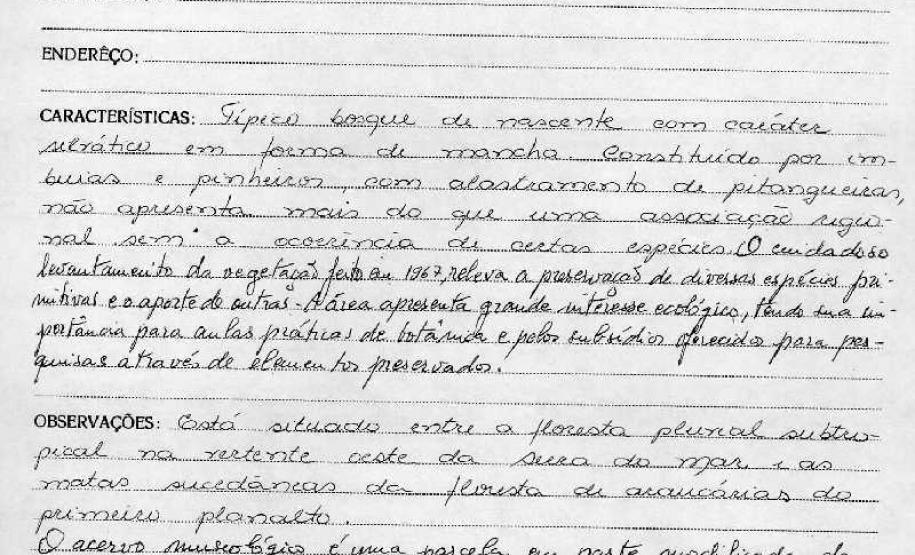 ENDERÊÇO:
CARACTERÍSTICAS: Típico bosque de nascente com caráter
selvático em forma de mancha. Constituido por im-
buias e pinheiros, com alastramento de pitangueiras,
não apresenta mais do que uma associação regio-
nal sem a ocorrência de certas espécies. O cuidadoso
levantamento da vegetação feito em 1967, releva a preservação de diversas espécies pri-
mitivas e o aporte de outras - A área apresenta grande interesse ecológico, tendo sua im-
portância para aulas práticas de botânica e pelos subsídios oferecidos para pes-
quisas através de elementos preservados.
OBSERVAÇÕES: Está situado entre a floresta pluvial subtro-
pical na vertente oeste da serra do mar e as
matas sucedâneas da floresta de araucárias do
primeiro planalto.
O acervo museológico é uma parcela em parte modificada